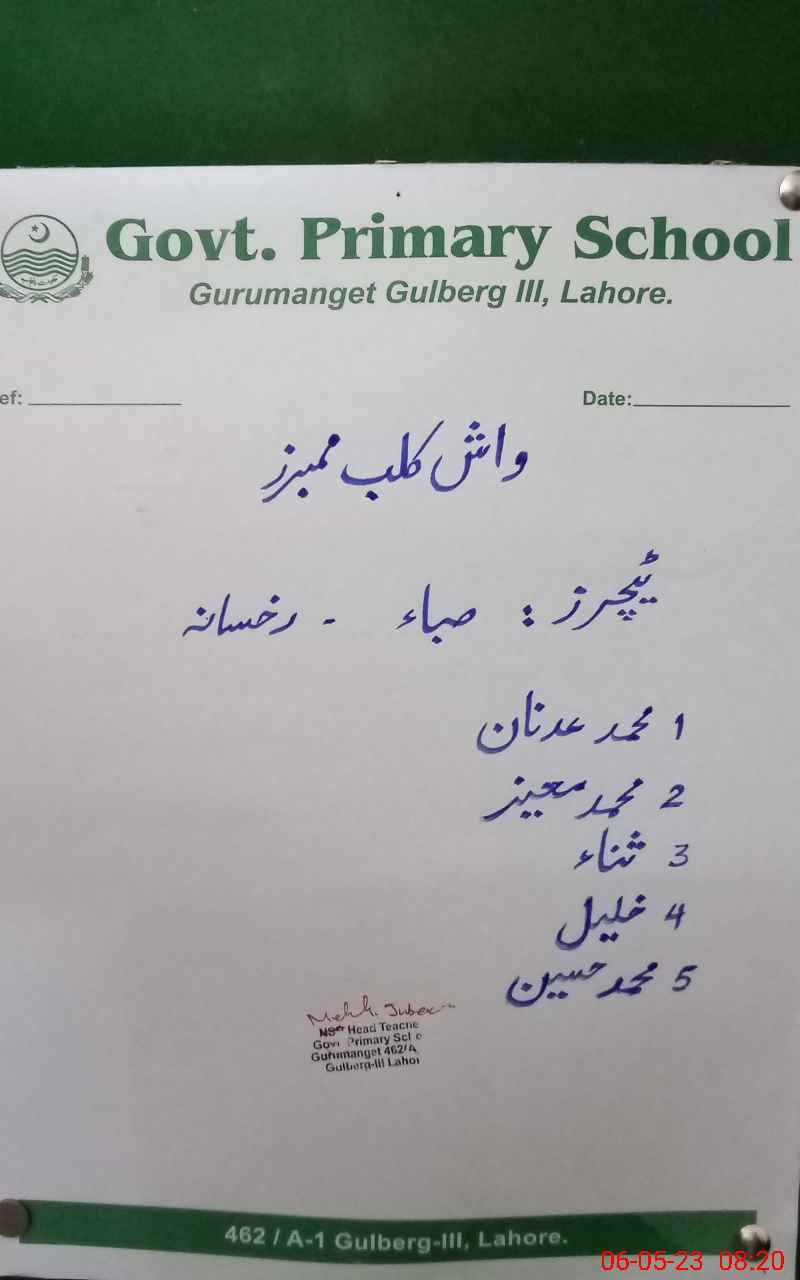 Govt. Primary School
Gurumanget Gulberg III, Lahore.
ef: Date:
واش کلب ممبرز
ٹیچرز : صباء - رخسانہ
1 محمد عدنان
2 محمد معیز
3 ثناء
4 خلیل
5 محمد حسین
Head Teache
Govt Primary Scl e
Gurumanget 462/A
Gulberg-III Lahor
462 / A-1 Gulberg-III, Lahore.
06-05-23 08:20